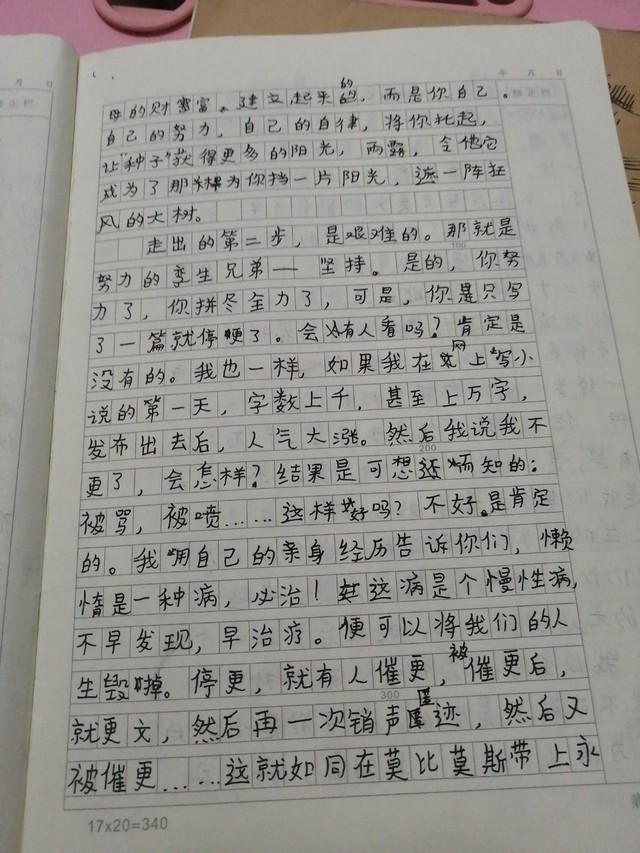 年 月 日
母的财富。建立起来的，而是你自己。
自己的努力，自己的自律，将你托起，
让"种子"获得更多的阳光，雨露，令他它
成为了那棵为你挡一片阳光，遮一阵狂
风的大树。
走出的第二步，是艰难的。那就是
100
努力的孪生兄弟——坚持。是的，你努
力了，你拼尽全力了，可是，你是只写
了一篇就停更了。会有人看吗？肯定是
没有的。我也一样，如果我在网上写小
说的第一天，字数上千，甚至上万字，
发布出去后，人气大涨。然后我说我不
200
更了，会怎样？结果是可想而知的：
被骂，被喷……这样好吗？不好。是肯定
的。我用自己的亲身经历告诉你们，懒
惰是一种病，必治！这病是个慢性病，
不早发现，早治疗。便可以将我们的人
生毁掉。停更，就有人催更，被催更后，
300
就更文，然后再一次销声匿迹，然后又
被催更……这就如同在莫比莫斯带上永
17x20=340